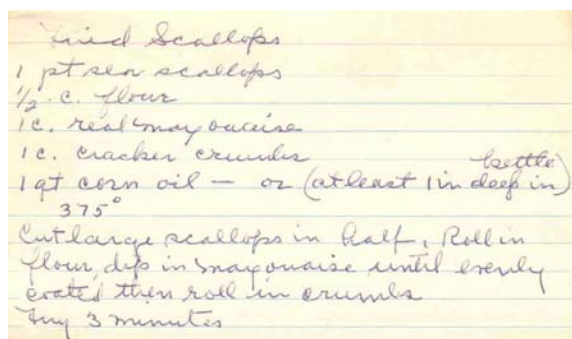 Fried Scallops
1 pt sea scallops
1/2 c. flour
1c. real mayonaise
1c. cracker crumbs
kettle
1 qt corn oil — or (at least 1 in deep in)
375°
Cut large scallops in half, Roll in
flour, dip in mayonaise until evenly
coated then roll in crumbs
Fry 3 minutes